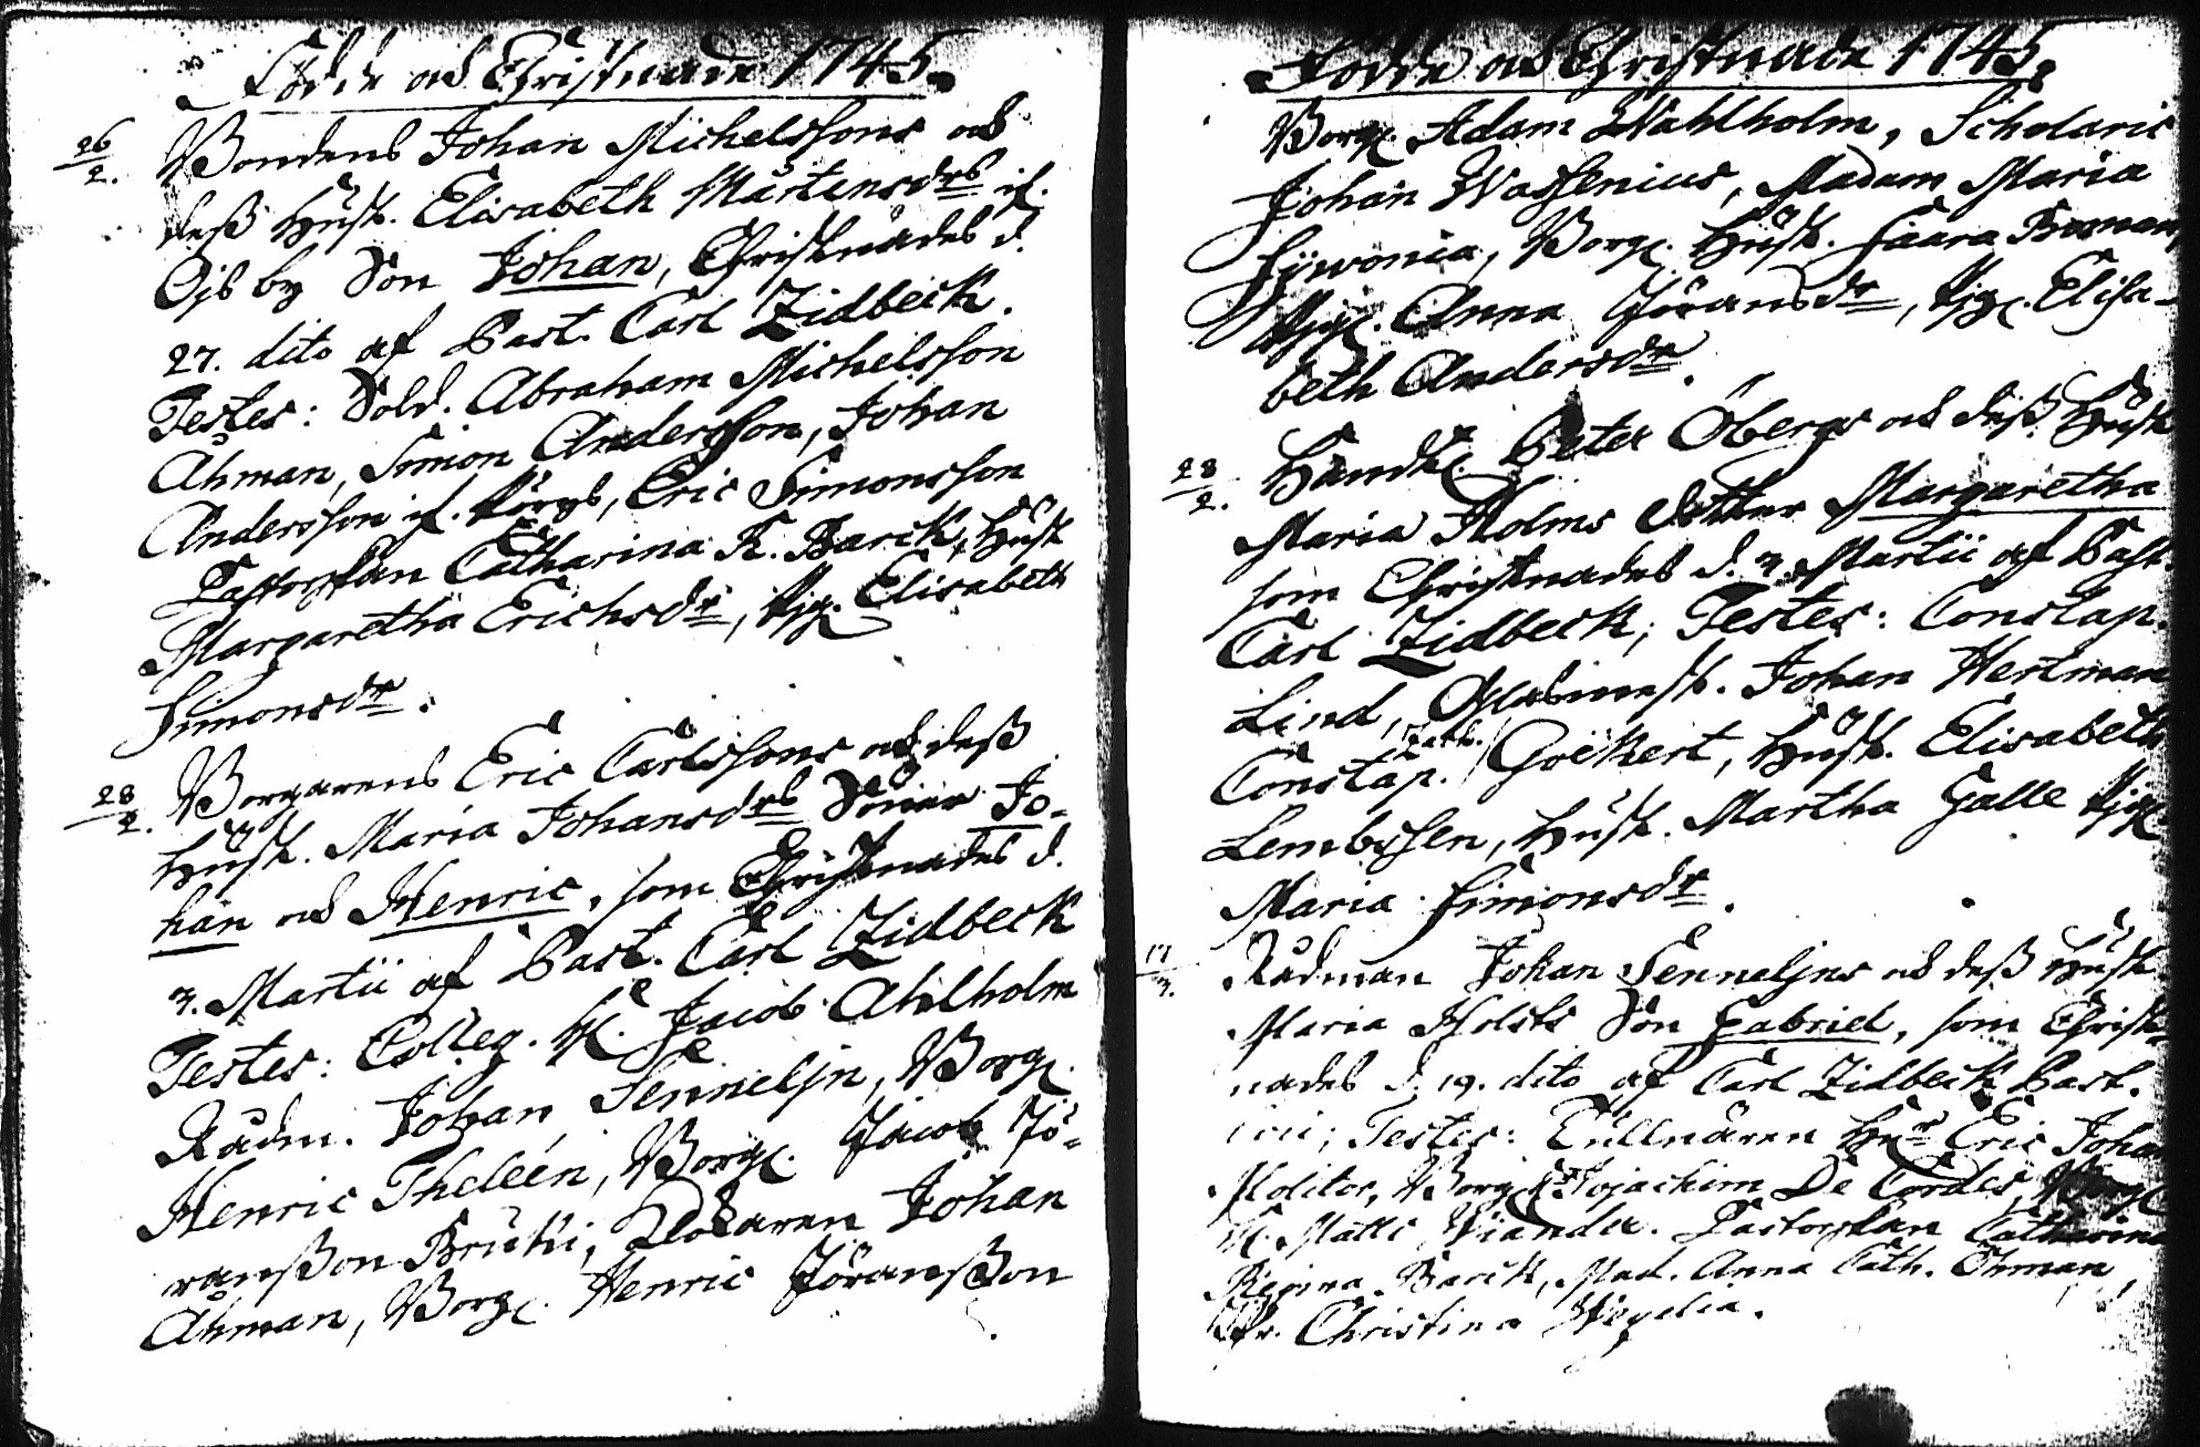 Födde och Christnade 1745.
26/2. Bondens Johan Michelssons och
dess Hust. Elisabeth Mårtensdrs if.
by Son Johan, Christnades d.
27. dito af Past. Carl Zidbeck.
Testes: Sold. Abraham Michelsson
Åhman, Simon Andersson, Johan
Andersson if. Eric Simonsson
Pastorskan Catharina R. Barck, Hust.
Margaretha Erichsdr, Pig. Elisabeth
Simonsdr.
28/2. Borgarens Eric Carlssons och dess
Hust. Maria Johansdrs Söner Jo-
han och Henric, som Christnades d.
3. Martii af Past. Carl Zidbeck
Testes: Colleg. H. Jacob Ahlholm
Rådm. Johan Senneljn, Borg.
Henric Theleen, Borg. Jacob Jö-
ransson Brusti, Johan
Åhman, Borg. Henric Jöransson
Födde och Christnade 1745.
Borg. Adam Wahlholm, Scholaris
Johan Wassenius, Madam Maria
Borg. Hust. Saara Boman,
Pig. Anna Jöransdr, Pig. Elisa-
beth Andersdr.
28/2. Handl. Peter Öbergs och dess Hust.
Maria Holms dotter Margaretha
som Christnades d. 3. Martii af Past.
Carl Zidbeck; Testes: Constap.
Lind, Johan Hertman
Constap. Göckert, Hust. Elisabeth
Lembssen, Hust. Martha Galle Pig.
Maria Simonsdr.
17/3. Rådman Johan Senneljns och dess Hust.
Maria Holsts Son Gabriel, som Christ-
nades d. 19. dito af Carl Zidbeck Past.
Testes: Tullnären Hr Eric Johan
Molitor, Borg. Hr Jojachim De Cordes, Borg.
H. Matts Wiander. Pastorskan Catharina
Regina Barck, Mad. Anna Cath. Öhman,
Christina Wigelia.